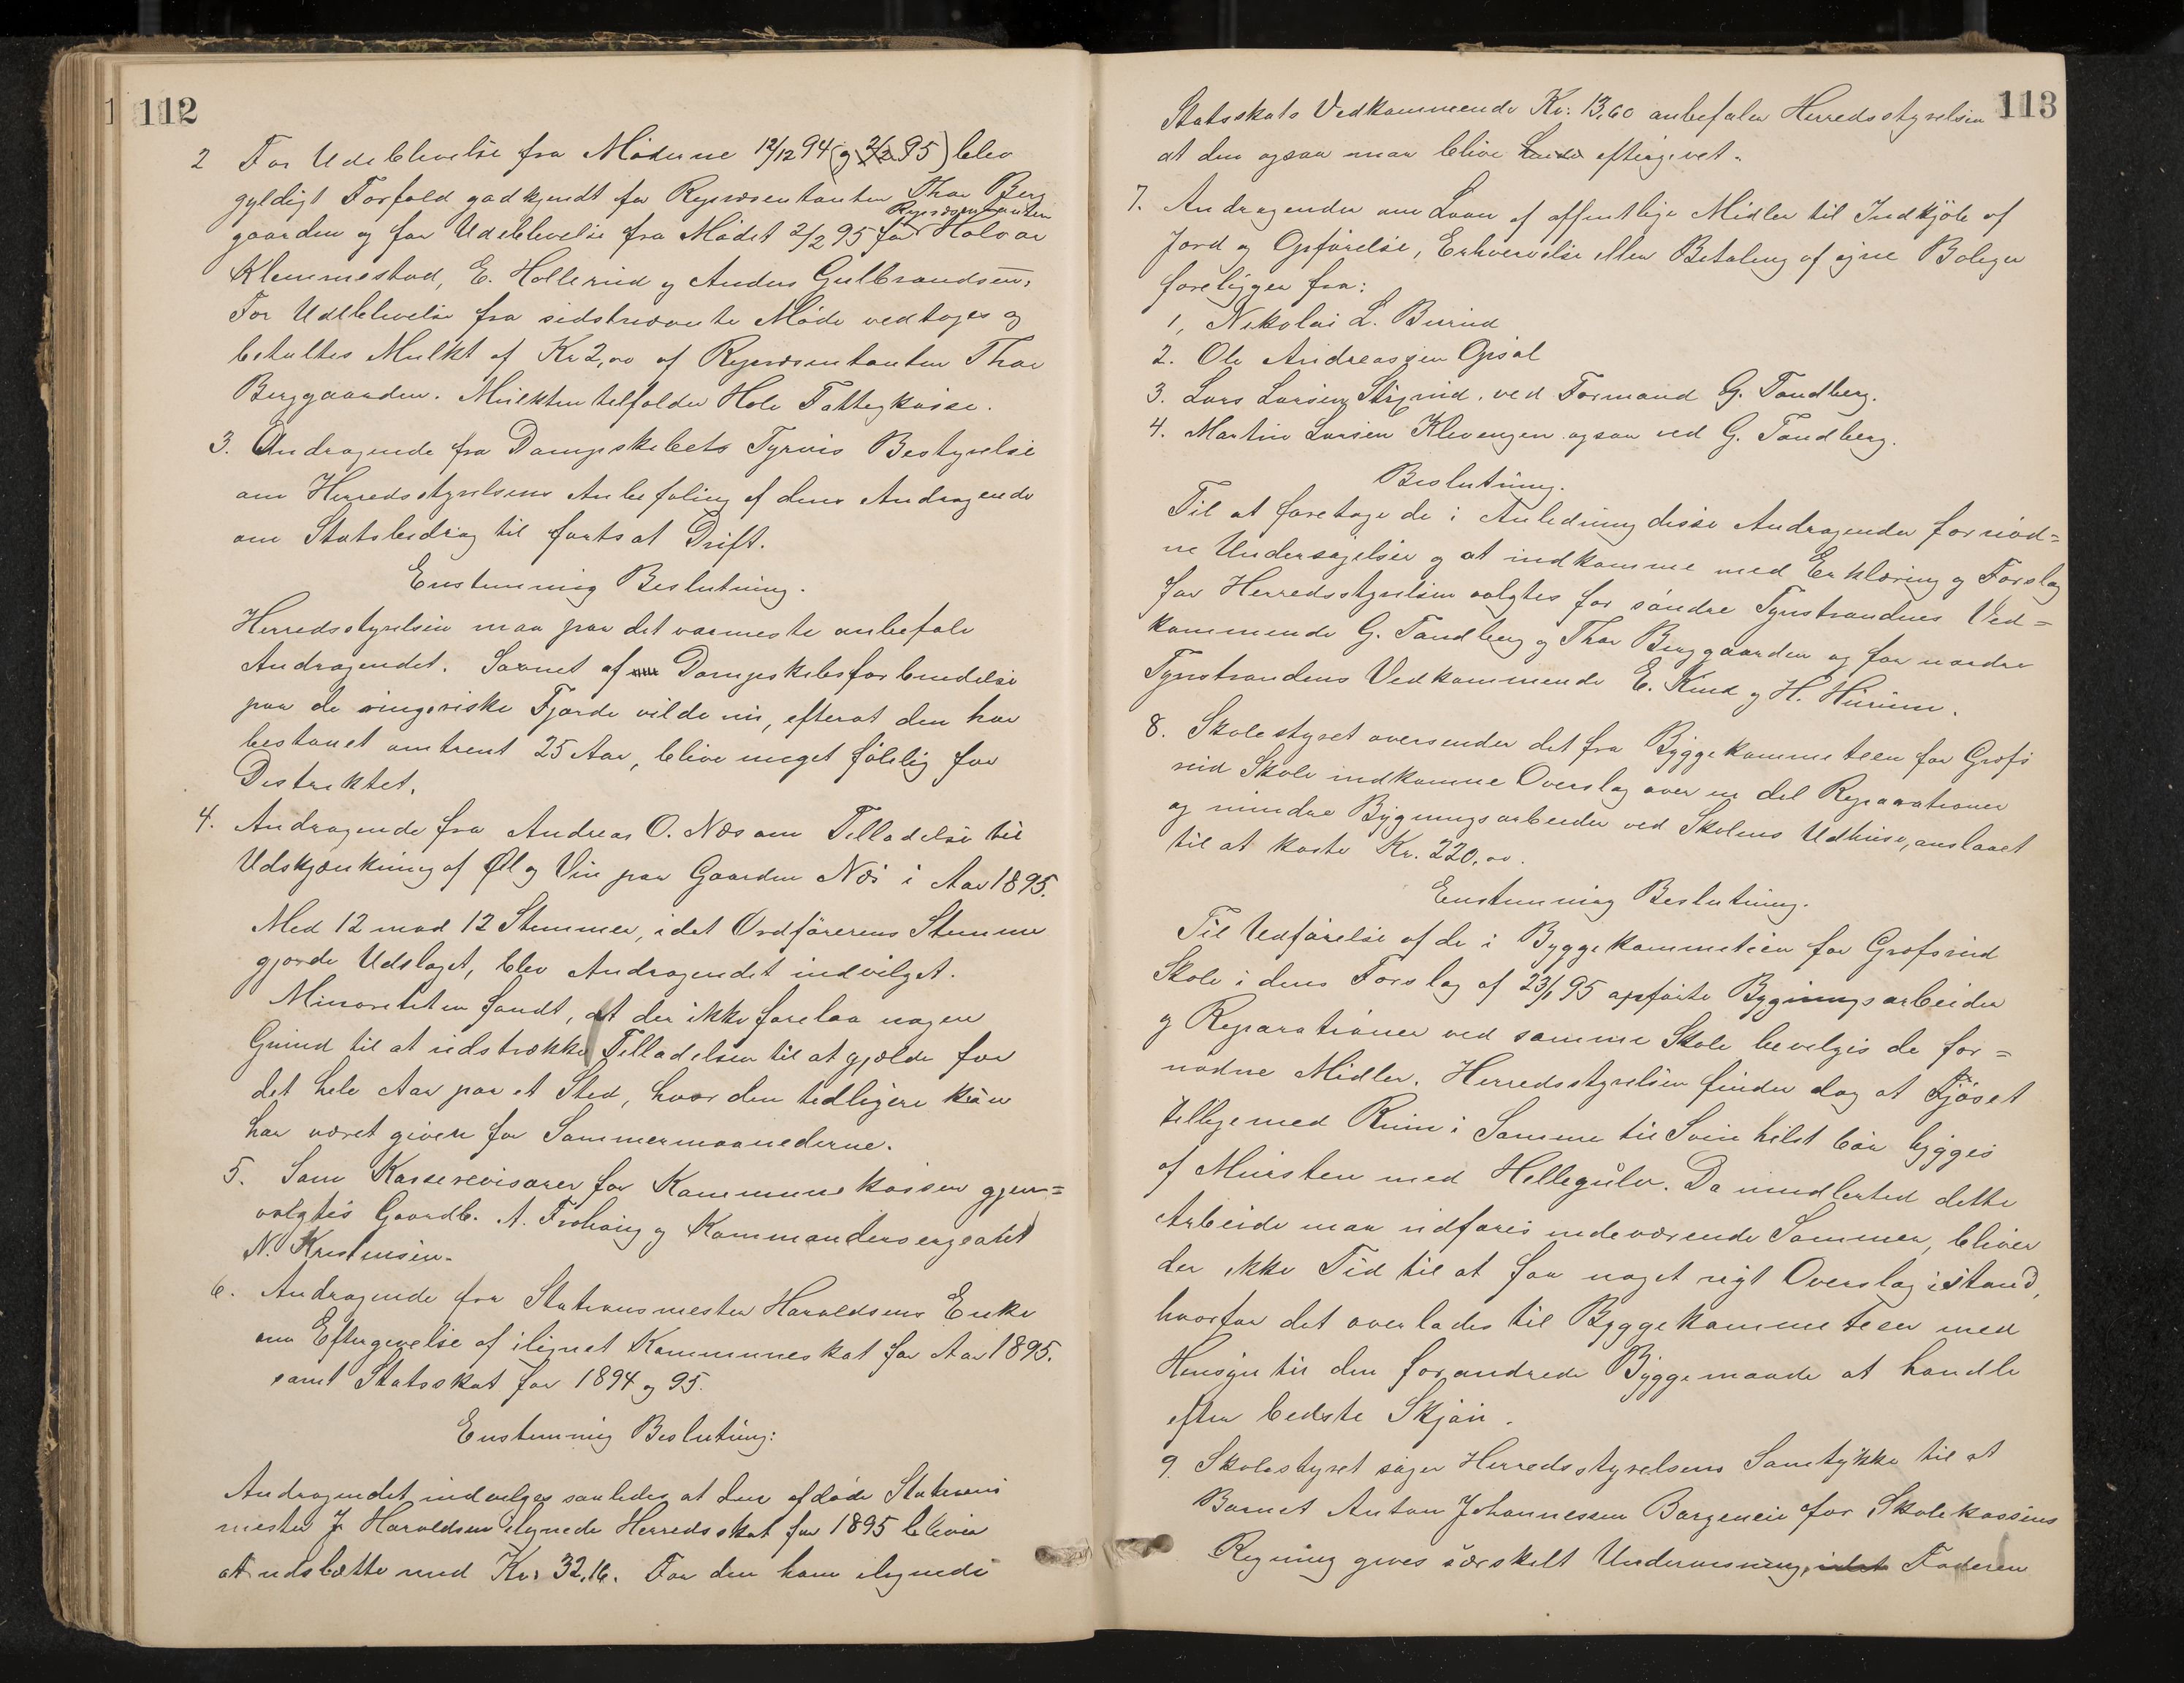 112
2 For Udeblivelse fra Møderne 12/12 94 (og 2/2 95) blev
gyldigt Forfald godkjendt for Repræsentanten Thor Berg
gaarden og for Udeblivelse fra Mødet 2/2 95 for Repræsentanten Halvor
Klemmestad, E. Hollerud og Anders Gulbrandsen,
For Udeblivelse fra sidstnævnte Møde vedtoges og
betaltes Mulkt af Kr 2,00 af Repræsentanten Thor
Berggaarden. Mulkten tilfalder Hole Fattigkasse.
3. Andragende fra Dampskibets Tyrvis Bestyrelse
om Herredsstyrelsens Anbefaling af dens Andragende
om Statsbidrag til fortsat Drift.
Enstemmig Beslutning.
Herredsstyrelsen maa paa det varmeste anbefale
Andragendet. Savnet af Dampskibsforbindelse
paa de ringeriske Fjorde vilde nu, efterat den har
bestaaet omtrent 25 Aar, blive meget følelig for
Distriktet.
4. Andragende fra Andreas O. Næs om Tilladelse til
Udskjænkning af Øl og Vin paa Gaarden Næs i Aar 1895.
Med 12 mod 12 Stemmer, idet Ordførerens Stemme
gjorde Udslaget, blev Andragendet indvilget.
Minoriteten fandt, at der ikke forelaa nogen
Grund til at udstrække Tilladelsen til at gjælde for
det hele Aar paa et Sted, hvor den tidligere kun
har været given for Sommermaanederne.
5. Som Kasserevisorer for Kommunekassen gjen=
valgtes Gaardb. A. Frøhaug og Kommandersergeant
N. Kristensen.
6. Andragende fra Stationsmester Haraldsens Enke
om Eftergivelse af ilignet Kommuneskat for Aar 1895.
samt Statsskat for 1894 og 95.
Enstemmig Beslutning:
Andragendet indvilges saaledes at den afdøde Stations
mester J. Haraldsen ilignede Herredsskat for 1895 bliver
at udslette med Kr. 32,16. For den ham ilignede
113
Statsskats Vedkommende Kr: 13,60 anbefaler Herredsstyrelsen
at den ogsaa maa blive eftergivet.
7. Andragender om Laan af offentlige Midler til Indkjøb af
Jord og Opførelse, Erhvervelse eller Betaling af egne Boliger
foreligger fra:
1, Nikolai L. Burud
2. Ole Andreassen Opsal
3. Lars Larsen ved Formand G. Tandberg.
4. Martin Larsen Klevengen ogsaa ved G. Tandberg.
Beslutning.
Til at foretage de i Anledning disse Andragender fornød=
ne Undersøgelser og at indkomme med Erklæring og Forslag
for Herredsstyrelsen valgtes for søndre Tyristrandens Ved=
kommende G. Tandberg og Thor Berggaarden og for nordre
Tyristrandens Vedkommende E. Kind og H. Hurum.
8. Skolestyret oversender det fra Byggekommiteen for Grøfs
rud Skole indkomne Overslag over en del Reparationer
og mindre Bygningsarbeider ved Skolens Udhuse, anslaaet
til at koste Kr. 220,00.
Enstemmig Beslutning.
Til Udførelse af de i Byggekommiteen for Grøfsrud
Skole i dens Forslag af 23/1 95 opførte Bygningsarbeider
og Reparationer ved samme Skole bevilges de for=
nødne Midler. Herredsstyrelsen finder dog at Fjøset
tilligemed Rum i Samme til Svin helst bør bygges
af Mursten med Hellegulv. Da imidlertid dette
Arbeide maa udføres indeværende Sommer, bliver
der ikke Tid til at faa noget nyt Overslag istand,
hvorfor det overlades til Byggekommiteen med
Hensyn til den forandrede Byggemaade at handle
efter bedste Skjøn.
9. Skolestyret søger Herredsstyrelsens Samtykke til at
Barnet Anton Johannessen Borgeneie for Skolekassens
Regning gives særskilt Undervisning, idet Faderen